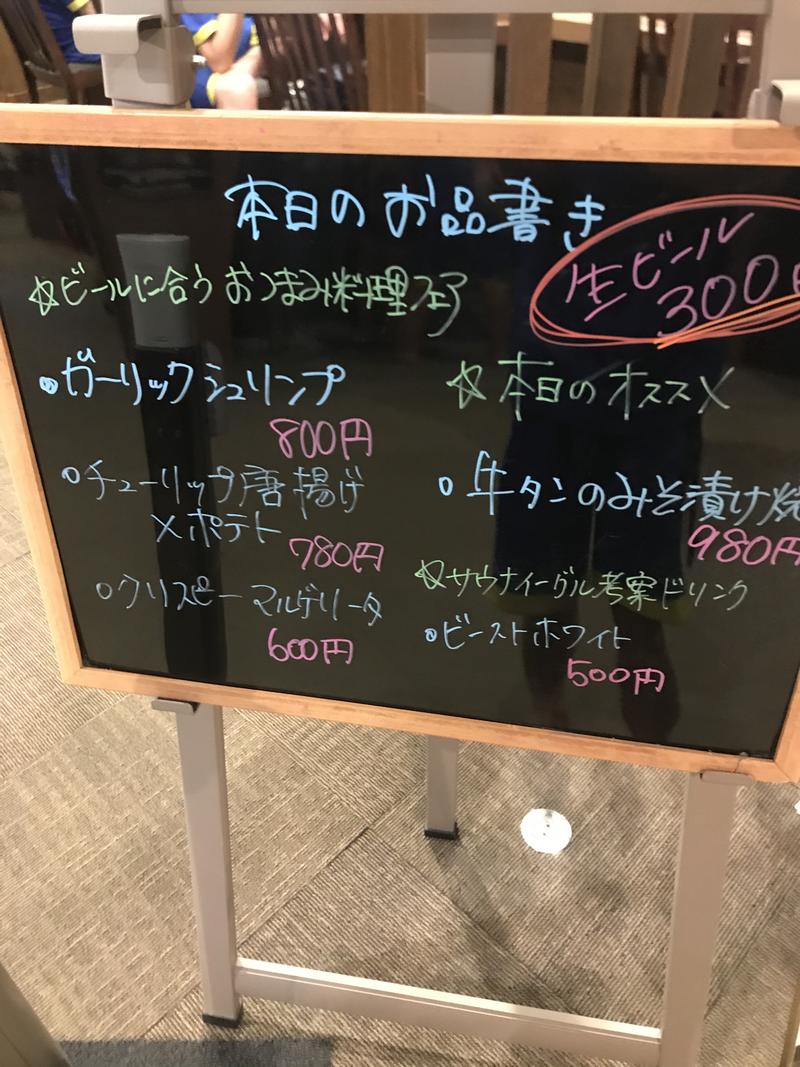 本日のお品書き
生ビール
300円
☆ビールに合うおつまみ料理フェア
・ガーリックシュリンプ
800円
・チューリップ唐揚げ
×ポテト
780円
・クリスピーマルゲリータ
600円
☆本日のオススメ
・牛タンのみそ漬け焼
980円
☆サウナイーグル考案ドリンク
・ビーストホワイト
500円